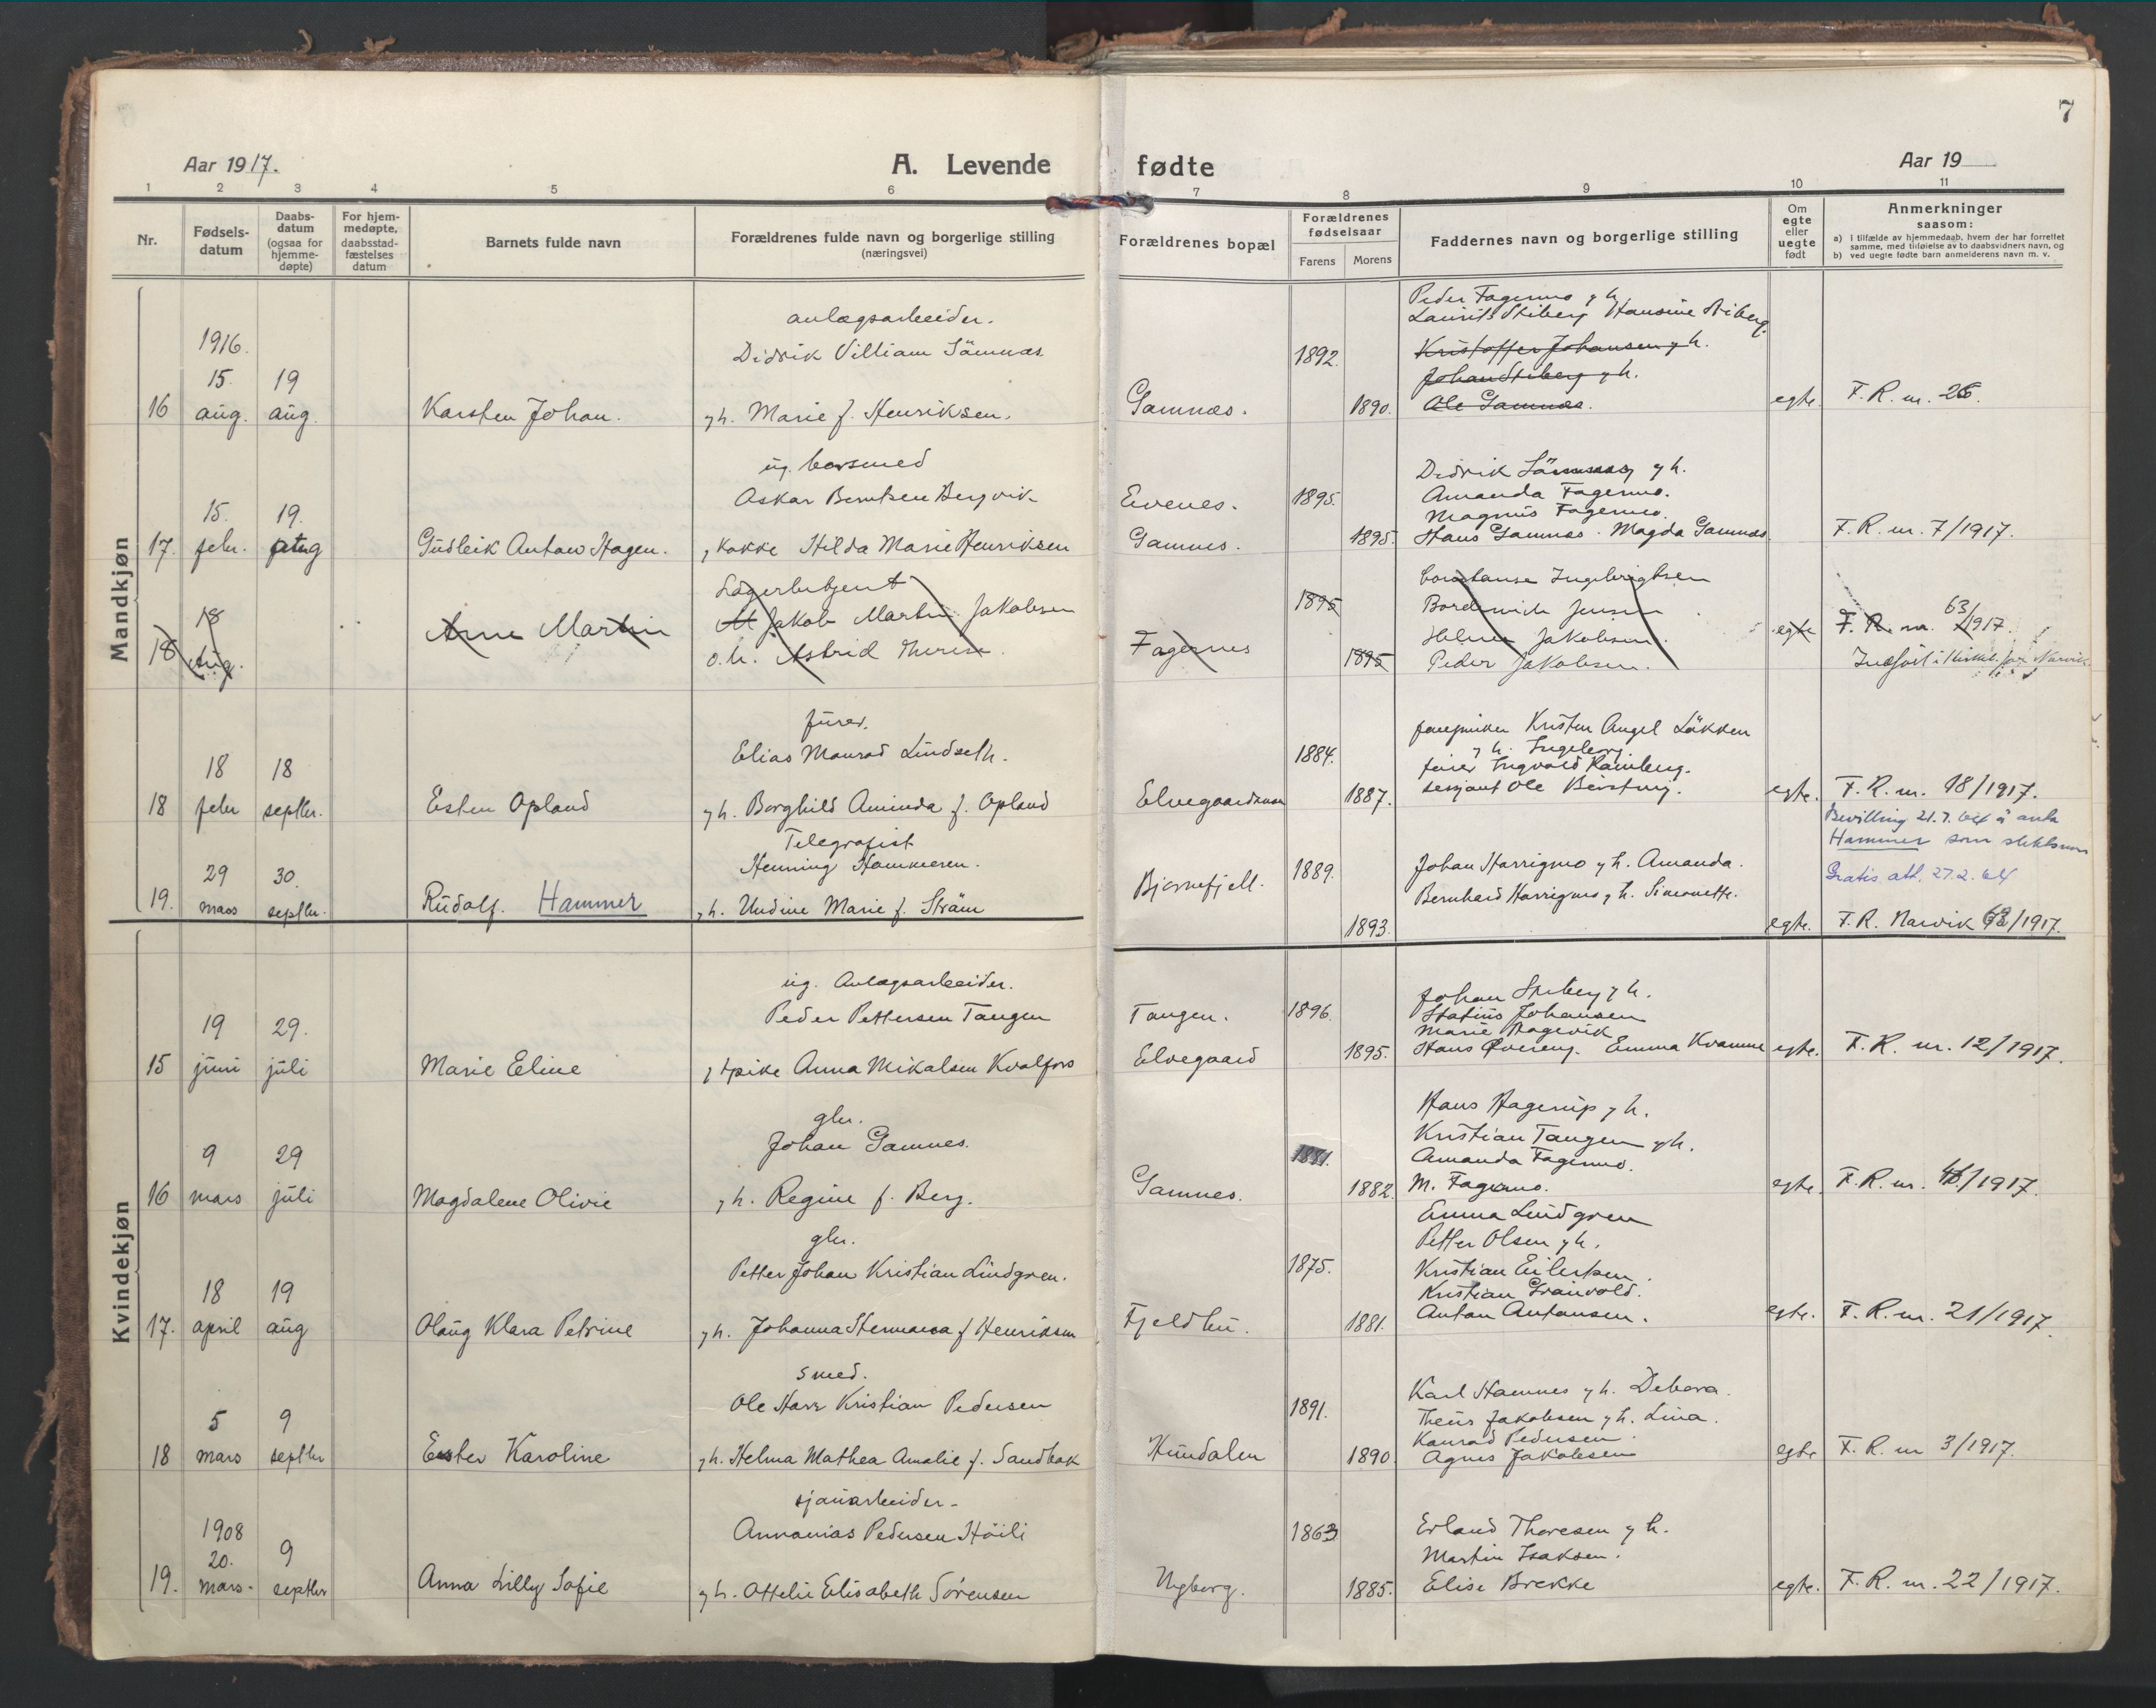 7
Aar 1917.
A. Levende fødte
Aar 19
1 2 3 4 5 6 7 8 9 10 11
Nr.
Fødsels-
datum
Daabs-
datum
(ogsaa for
hjemme-
døpte)
For hjem-
medøpte,
daabsstad-
fæstelses
datum
Barnets fulde navn
Forældrenes fulde navn og borgerlige stilling
(næringsvei)
Forældrenes bopæl
Forældrenes
fødselsaar
Farens Morens
Faddernes navn og borgerlige stilling
Om
egte
eller
uegte
født
Anmerkninger
saasom:
a) i tilfælde av hjemmedaab, hvem der har forrettet
samme, med tilføielse av to daabsvidners navn, og
b) ved uegte fødte barn anmelderens navn m. v.
Mandkjøn
16
1916.
15.
aug.
19
aug.
Karsten Johan.
anlægsarbeider.
Didrik Villiam Sämnas
y h. Marie f. Henriksen.
Gamnæs.
1892.
1890.
Peder Fagermo y h.
Laurits Stiberg Hansine Stiberg.
Kristoffer Johansen y h.
Johan Stiberg y h.
Ole Gamnæs.
egte.
F. R. nr. 26.
17.
15.
febr.
19.
aug
Gudleik Antow Hagen.
ug. borsmed
Askar Berntsen Bergvik
, kokke Hilda Marie Henriksen
Evenes.
Gamnes.
1895.
1895.
Didrik y h.
Amanda Fagermo.
Magnus Fagermo.
Hans Gamnæs. Magda Gamnæs
F. R. nr. 7/1917.
18
18
Aug.
Arne Martin
Lagerbetjent
Jakob Martin Jakobsen
o. h. Astrid Therese.
Fagernes
1895
1895
Constanse Ingebrigtsen
Jensen
Helmer Jakobsen.
Peder Jakobsen.
egte
F. R. nr. 63/1917.
Indført i Kirkeb. for Narvik.
18
18
febr
18
septbr.
Esten Opland
furer.
Elias Monrad Lindseth.
y h. Borghild Aminda f. Opland
1884.
1887.
Kristen Angel Läkken
y h. Ingeborg.
furer Ingvald Ramberg.
sersjant Ole
egte.
F. R. nr. 18/1917.
19.
29
mars
30.
septbr.
Rudolf. Hammer
Telegrafist
Henning Hammeren.
y h. Undine Marie f. Sträm
Bjørnefjell.
1889.
1893.
Johan Harrigmo y h. Amanda.
Bernhard Harrigmo y h. Simonette.
egte.
Bevilling 21.7.64 å anta
Hammer som slektsnavn
Gratis att. 27.2.64
F. R. Narvik 68/1917.
Kvindekjøn
15
19
juni
29.
juli
Marie Eline
ug. Anlægsarbeider.
Peder Pettersen Tangen
y pike Anna Mikalsen Kvalfors
Tangen.
Elvegaard
1896.
1895.
Johan Stiberg y h.
Statius Johansen
Marie Hagevik
Hans Emma Kvamme
egte.
F. R. nr. 12/1917.
16
9
mars
29
juli
Magdalene Olivie
gbr.
Johan Gamnes.
y h. Regine f. Berg.
Gamnes.
1881.
1882.
Hans Hagerup y h.
Kristian Tangen y h.
Amanda Fagermo.
M. Fagermo.
egte.
17.
18
april
19
aug
Olaug Klara Petrine
gbr.
Petter Johan Kristian Lindgren.
y h. Johanna f Henriksen
Fjeldbu.
1875.
1881.
Emma Lindgren
Petter Olsen y h.
Kristian Eilertsen.
Kristian Granvold.
Antan Antansen.
egte.
F. R. nr. 21/1917.
18
5
mars
9
septbr
Ester Karoline
smed.
Ole Harr Kristian Pedersen
y h. Helma Mathea Amalie f. Sandbak
Hundalen
1891.
1890.
Karl Hamnes y h. Debora.
Theus Jakobsen y h. Lina.
Konrad Pedersen.
Agnes Jakobsen
egte
F. R. nr 3/1917.
19.
1908
20.
mars.
9
septbr
Anna Lilly Sofie
sjauarbeider
Annanias Pedersen Höili
y h. Ottelie Elisabeth Sörensen
Nyborg.
1863
1885.
Erland Thoresen y h.
Martin Isaksen.
Elise Brekke
egte.
F. R. nr. 22/1917.